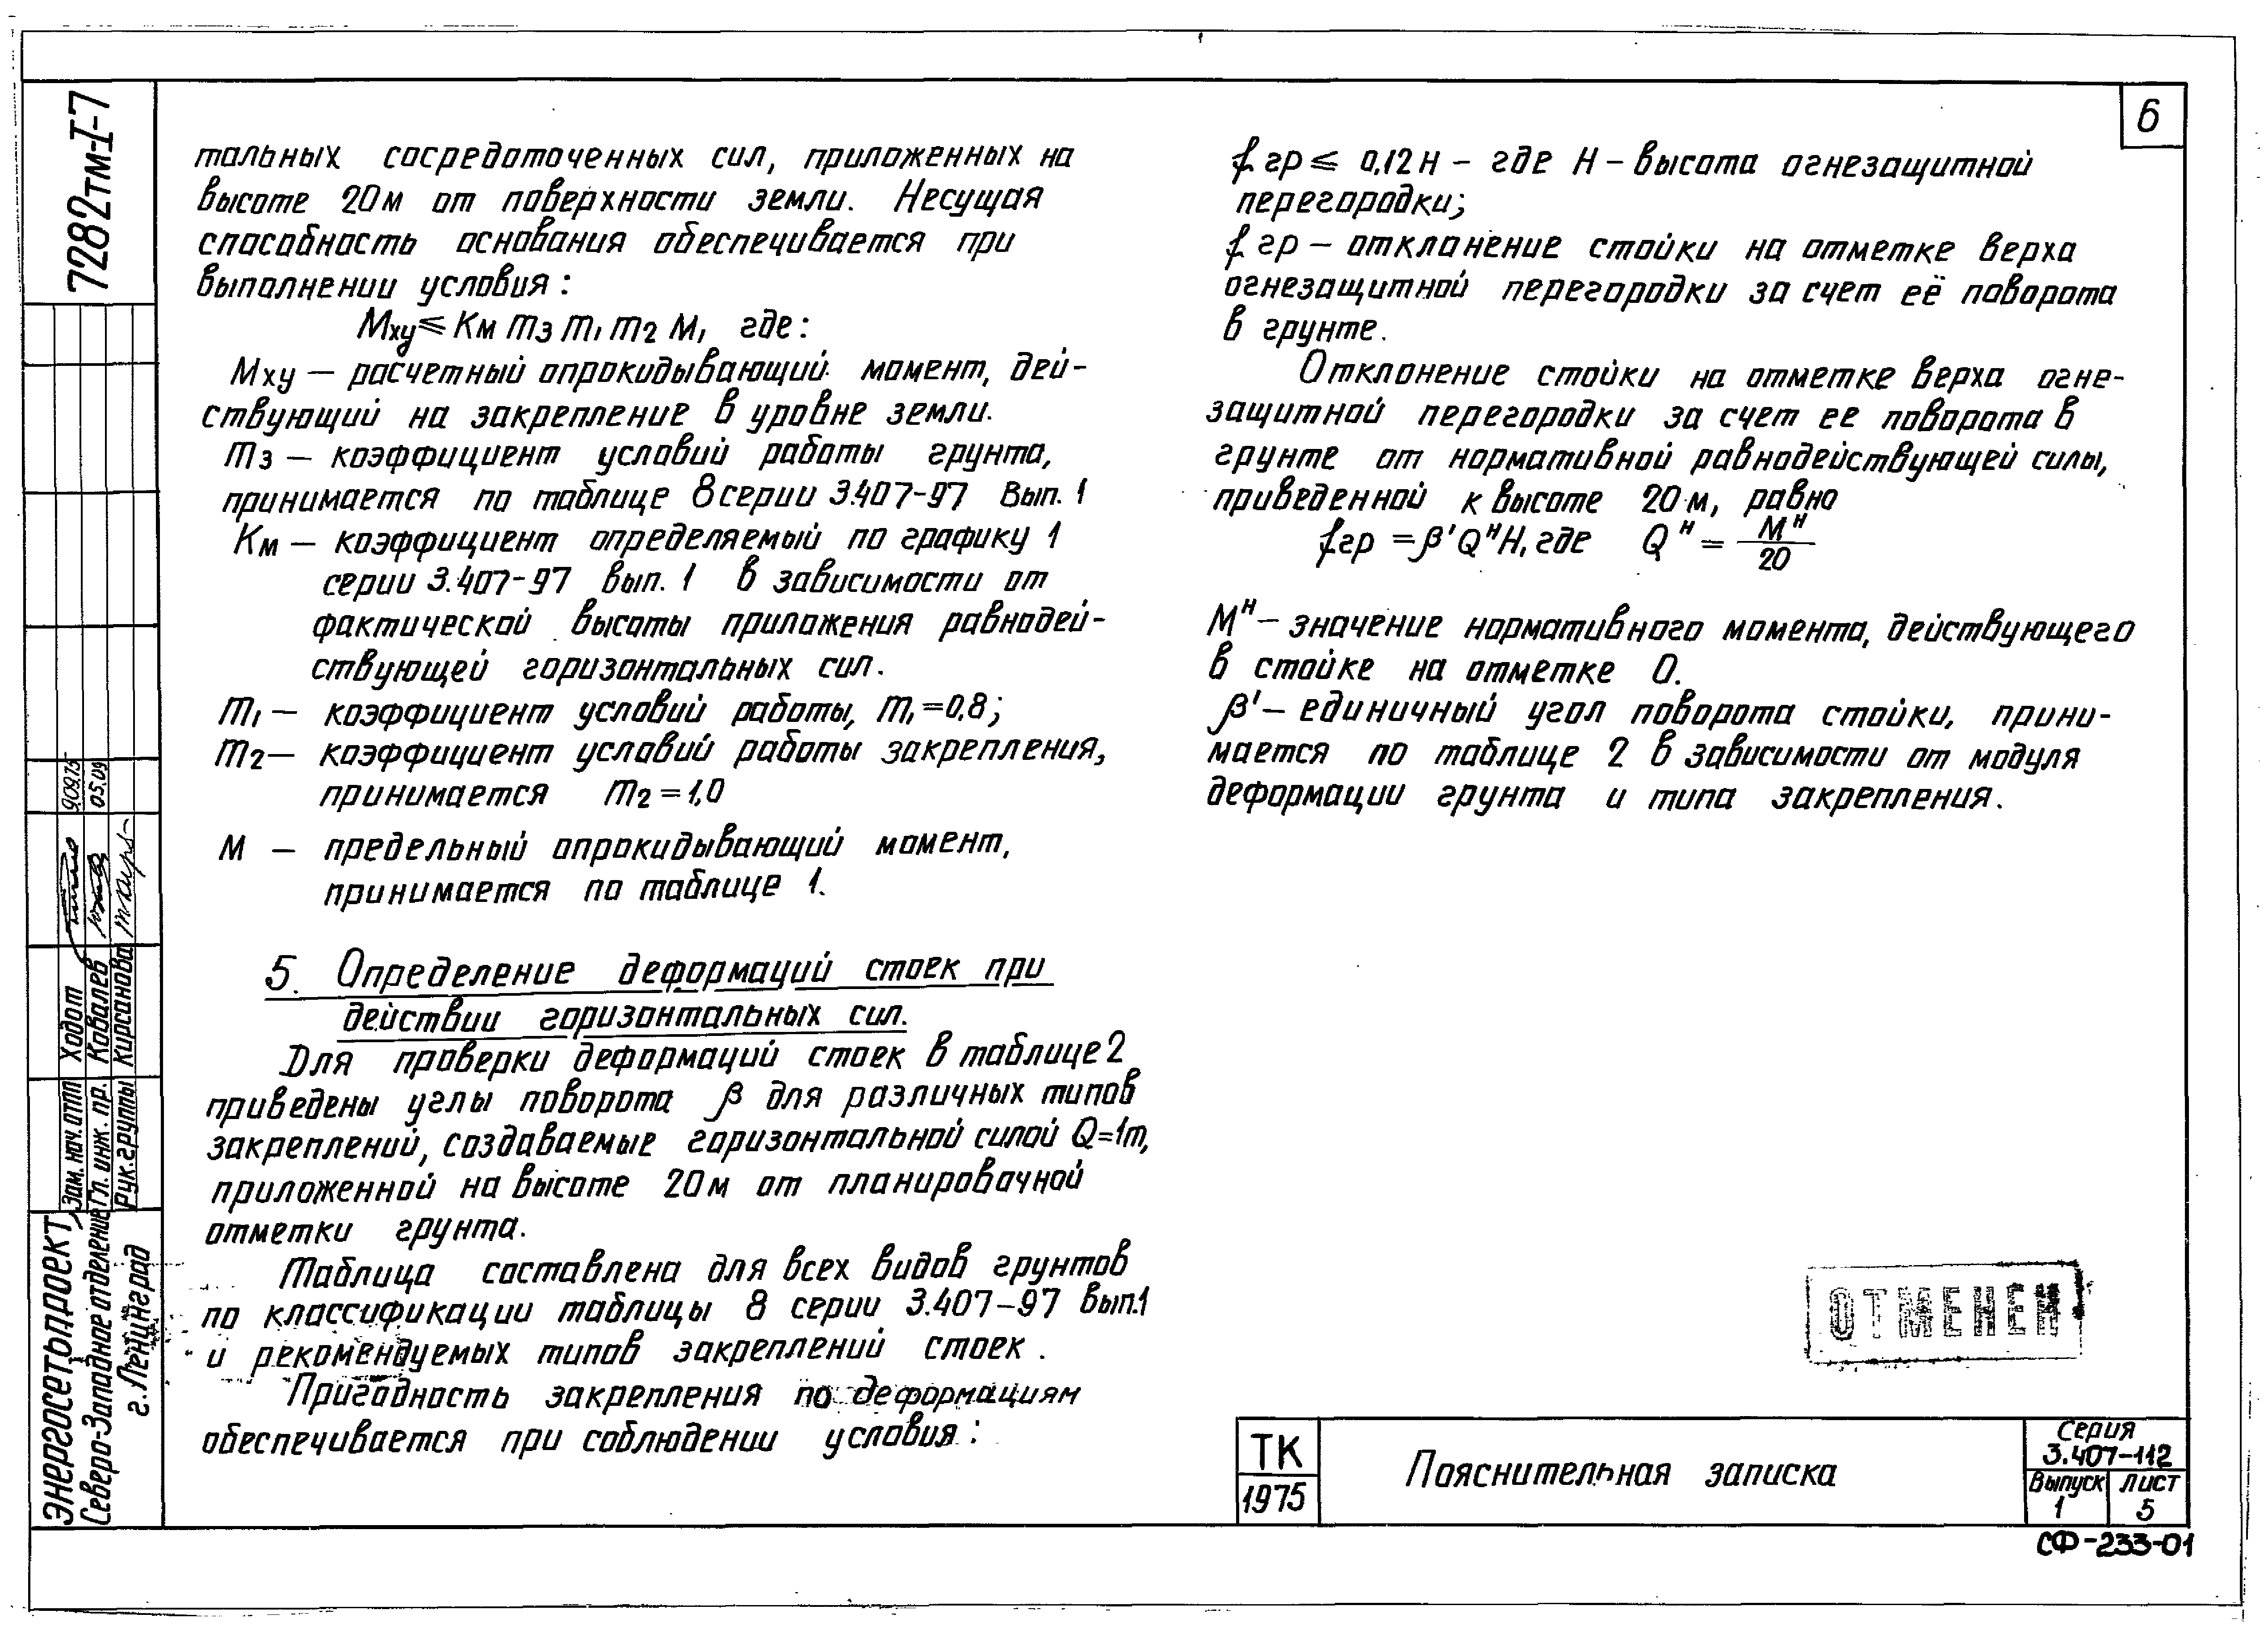 6
тальных сосредоточенных сил, приложенных на
высоте 20м от поверхности земли. Несущая
способность основания обеспечивается при
выполнении условия:
Мху ≤ Км m3 m1 m2 М, где:
Мху — расчетный опрокидывающий момент, дей-
ствующий на закрепление в уровне земли.
m3 — коэффициент условий работы грунта,
принимается по таблице 8 серии 3.407-97 Вып. 1
Км — коэффициент определяемый по графику 1
серии 3.407-97 вып. 1 в зависимости от
фактической высоты приложения равнодей-
ствующей горизонтальных сил.
m1 — коэффициент условий работы, m1=0,8;
m2 — коэффициент условий работы закрепления,
принимается m2=1,0
М — предельный опрокидывающий момент,
принимается по таблице 1.
5. Определение деформаций стоек при
действии горизонтальных сил.
Для проверки деформаций стоек в таблице 2
приведены углы поворота β для различных типов
закреплений, создаваемые горизонтальной силой Q=1т,
приложенной на высоте 20м от планировочной
отметки грунта.
Таблица составлена для всех видов грунтов
по классификации таблицы 8 серии 3.407-97 Вып.1
и рекомендуемых типов закреплений стоек.
Пригодность закрепления по деформациям
обеспечивается при соблюдении условия:
fгр ≤ 0,12Н — где Н — высота огнезащитной
перегородки;
fгр — отклонение стойки на отметке верха
огнезащитной перегородки за счет её поворота
в грунте.
Отклонение стойки на отметке верха огне-
защитной перегородки за счет ее поворота в
грунте от нормативной равнодействующей силы,
приведенной к высоте 20м, равно
fгр = β'QᴴН, где Qᴴ = Мᴴ/20
Мᴴ — значение нормативного момента, действующего
в стойке на отметке 0.
β' — единичный угол поворота стойки, прини-
мается по таблице 2 в зависимости от модуля
деформации грунта и типа закрепления.
ОТМЕНЕН
ТК
1975
Пояснительная записка
Серия
3.407-112
Выпуск
1
Лист
5
СФ-233-01
7282тм-I-7
9.09.75
05.09
Зам. нач. отпп Ходот
Гл. инж. пр. Ковалев
Рук. группы Кирсанова
ЭНЕРГОСЕТЬПРОЕКТ
Северо-Западное отделение
г. Ленинград